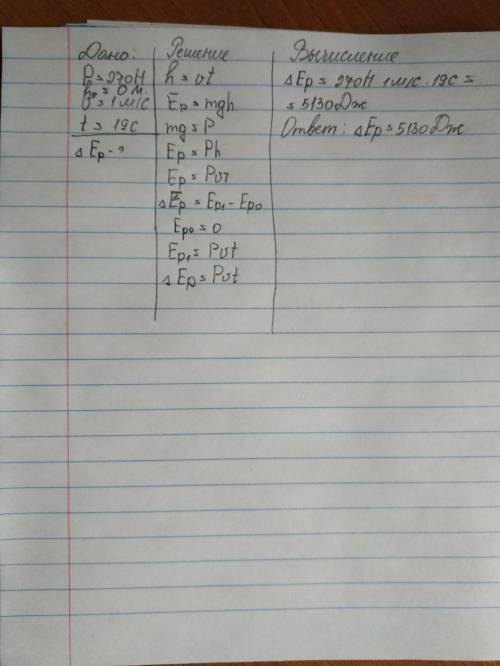 Дано:
P = 270Н
h₀ = 0 м.
υ = 1 м/с
t = 19с
ΔEp - ?
Решение
h = υt
Ep = mgh
mg = P
Ep = Ph
Ep = Pυt
ΔEp = Ep₁ - Ep₀
Ep₀ = 0
Ep₁ = Pυt
ΔEp = Pυt
Вычисление
ΔEp = 270Н · 1м/с · 19с =
= 5130Дж
Ответ: ΔEp = 5130Дж